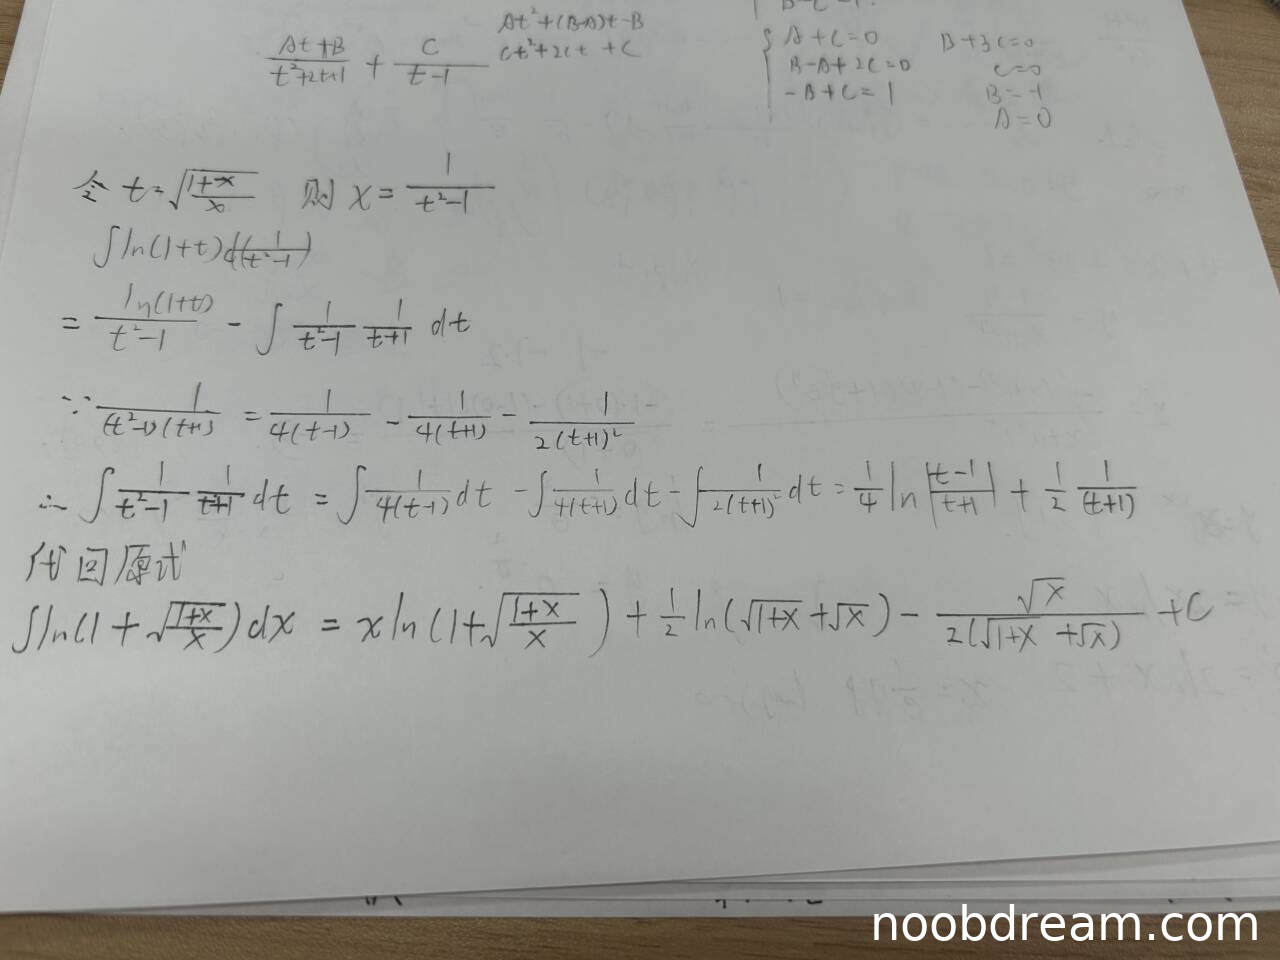 B-C=1.
\frac{At+B}{t^2+2t+1} + \frac{C}{t-1}
At^2+(B-A)t-B
Ct^2+2Ct+C
{ A+C=0
B-A+2C=0
-B+C=1
B+3C=0
C=0
B=-1
A=0
令 t=\sqrt{\frac{1+x}{x}} 则 x=\frac{1}{t^2-1}
∫ln(1+t)d(\frac{1}{t^2-1})
= \frac{ln(1+t)}{t^2-1} - ∫\frac{1}{t^2-1} \frac{1}{t+1} dt
∵ \frac{1}{(t^2-1)(t+1)} = \frac{1}{4(t-1)} - \frac{1}{4(t+1)} - \frac{1}{2(t+1)^2}
∴ ∫\frac{1}{t^2-1} \frac{1}{t+1} dt = ∫\frac{1}{4(t-1)}dt - ∫\frac{1}{4(t+1)}dt - ∫\frac{1}{2(t+1)^2}dt = \frac{1}{4} ln|\frac{t-1}{t+1}| + \frac{1}{2} \frac{1}{(t+1)}
代回原式
∫ln(1+\sqrt{\frac{1+x}{x}})dx = x ln(1+\sqrt{\frac{1+x}{x}}) + \frac{1}{2} ln(\sqrt{1+x}+\sqrt{x}) - \frac{\sqrt{x}}{2(\sqrt{1+x}+\sqrt{x})} + C
noobdream.com